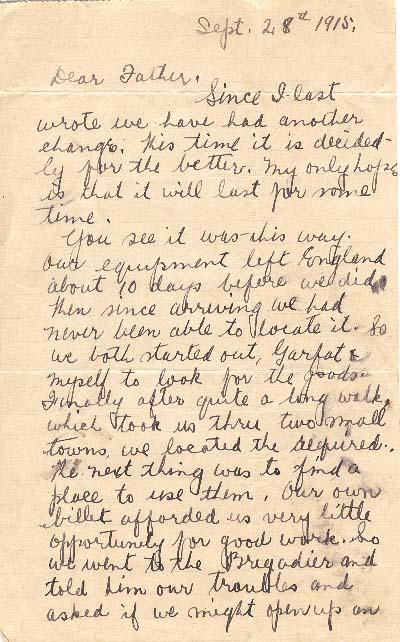 Sept. 28th 1915.
Dear Father.
Since I last
wrote we have had another
change. This time it is decided-
ly for the better. My only hope
is that it will last for some
time.
You see it was this way.
Our equipment left England
about 10 days before we did.
Then since arriving we had
never been able to locate it. So
we both started out, Garfat &
myself to look for the goods.
Finally after quite a long walk,
which took us thru, two small
towns, we located the required.
The next thing was to find a
place to use them. Our own
billet afforded us very little
opportunity for good work. So
we went to the Brigadier and
told him our troubles and
asked if we might open up an